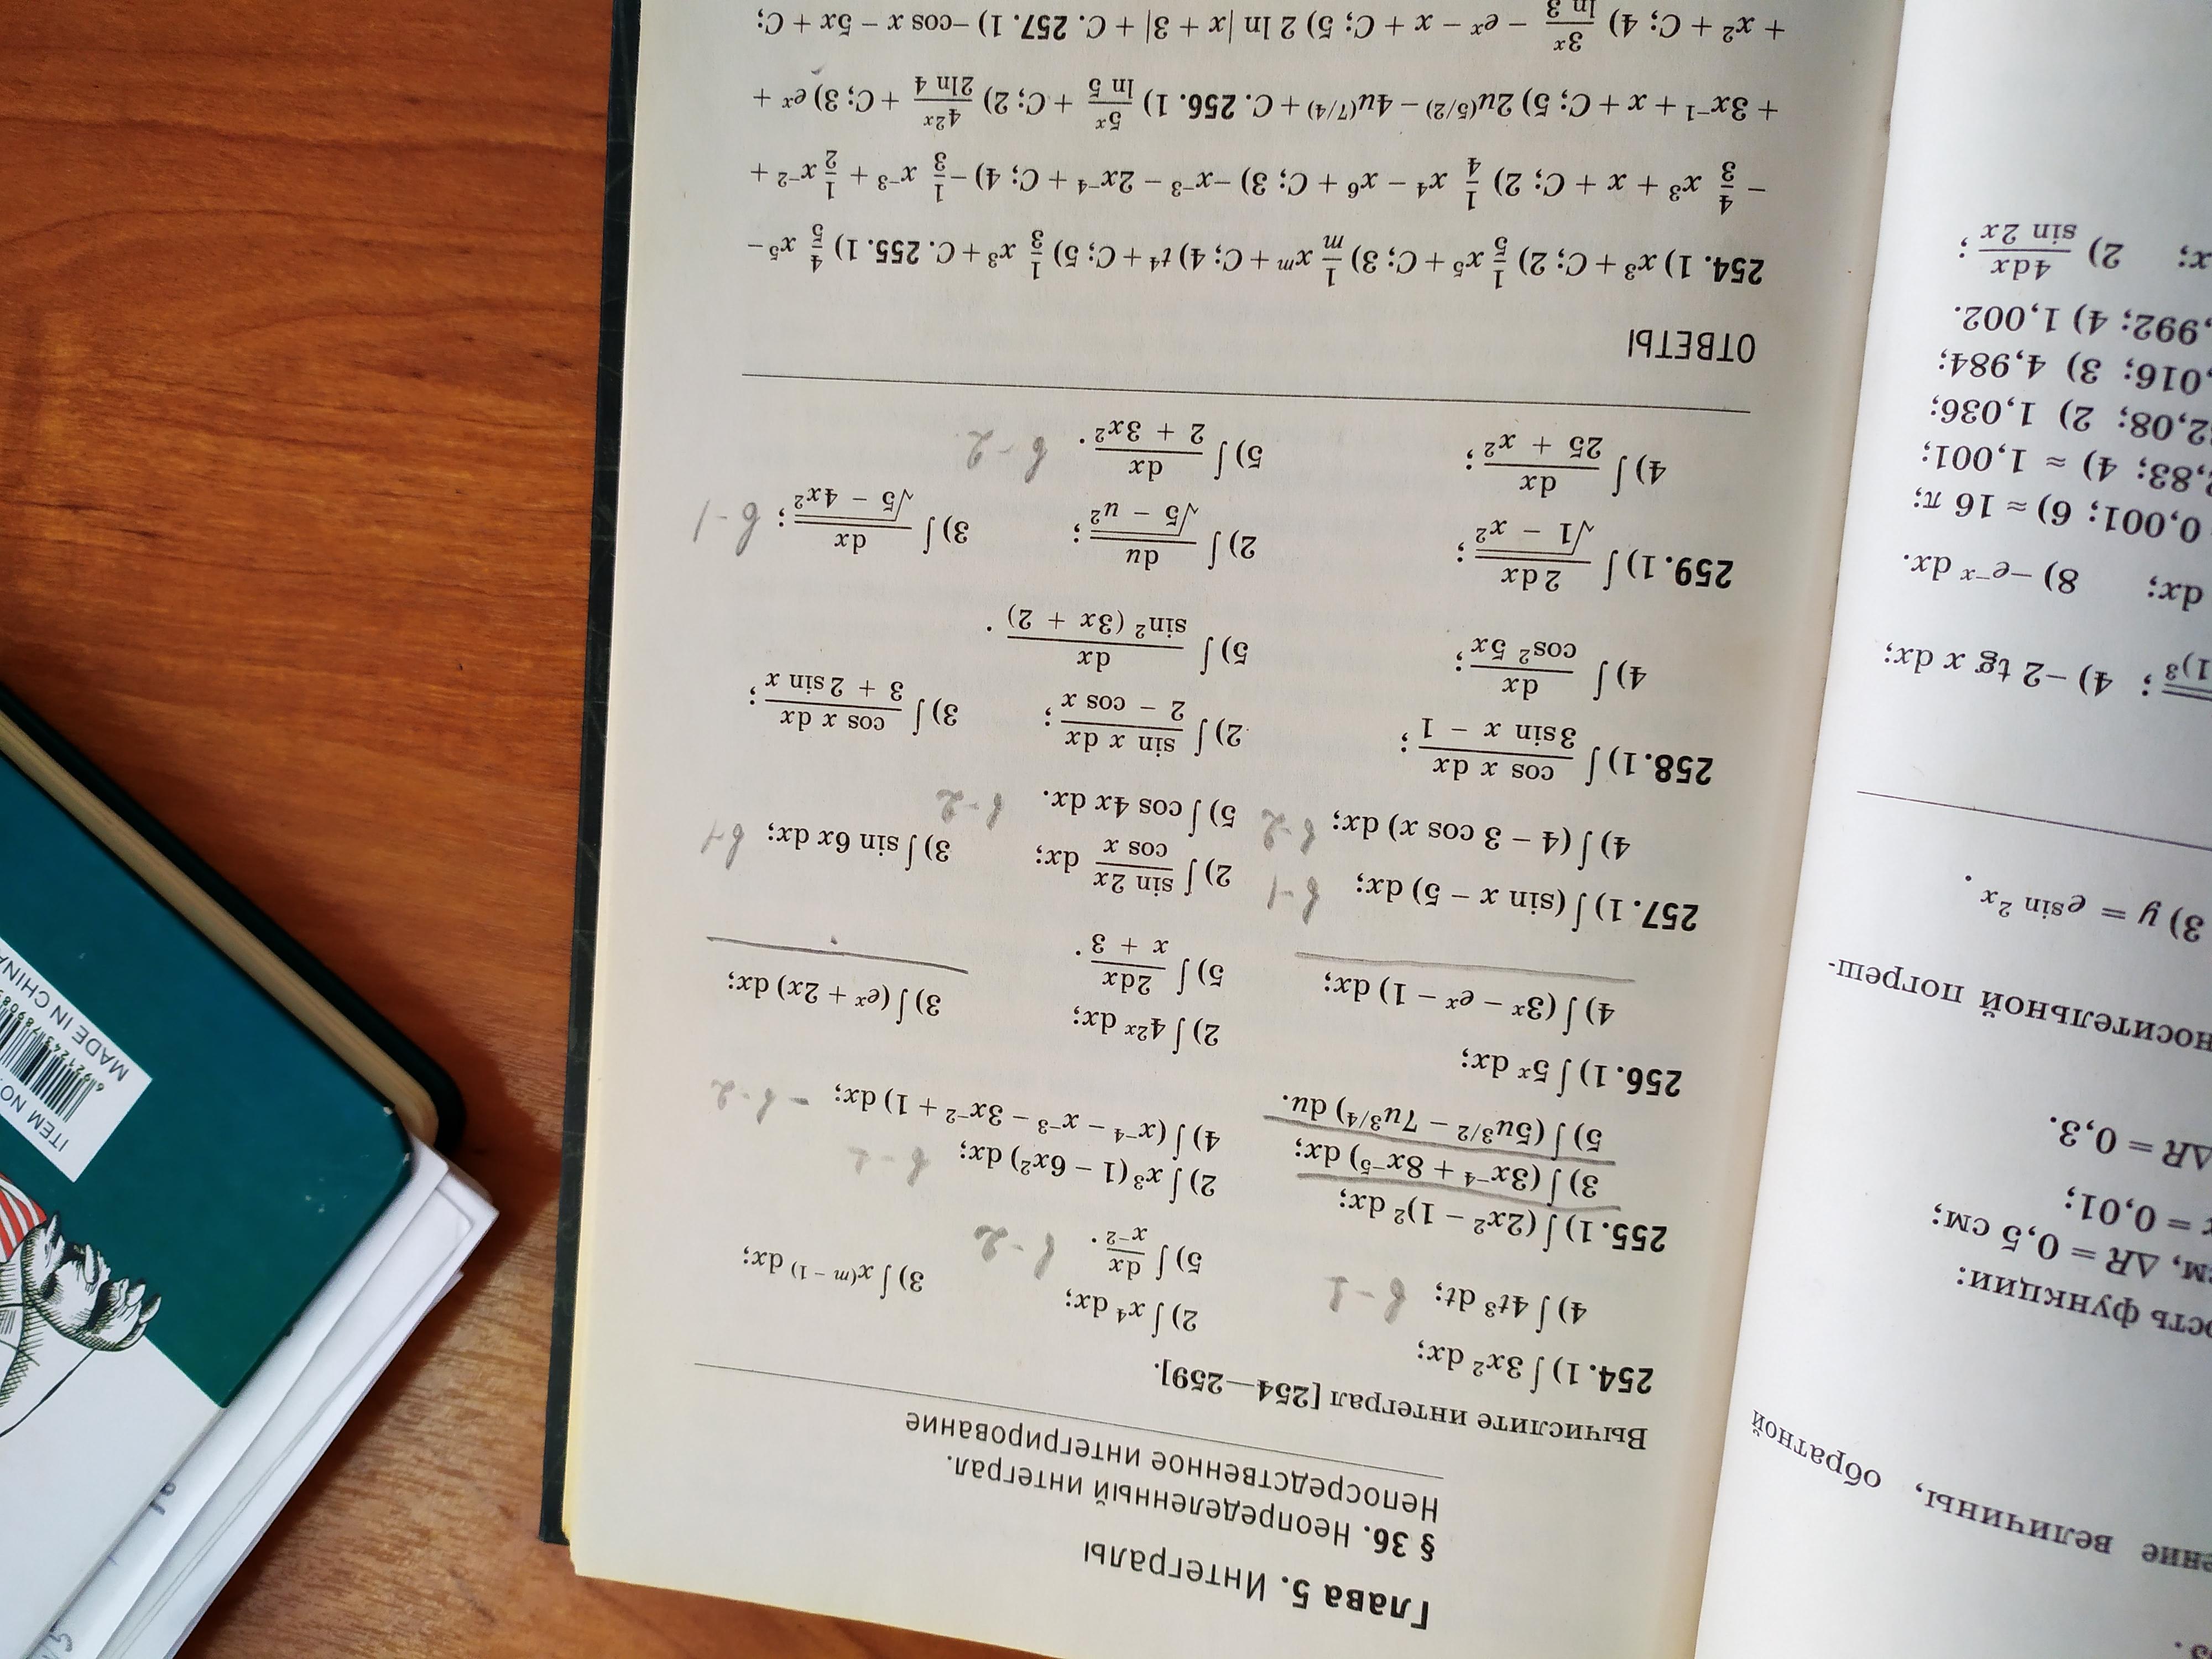 Глава 5. Интегралы
§ 36. Неопределенный интеграл.
Непосредственное интегрирование
Вычислите интеграл [254—259].
254. 1) ∫ 3x² dx; 2) ∫ x⁴ dx; 3) ∫ x^(m – 1) dx;
4) ∫ 4t³ dt; в-1 5) ∫ dx/x⁻². в-2
255. 1) ∫ (2x² – 1)² dx; 2) ∫ x³(1 – 6x²) dx; в-2
3) ∫ (3x⁻⁴ + 8x⁻⁵) dx; 4) ∫ (x⁻⁴ – x⁻³ – 3x⁻² + 1) dx; – в-2
5) ∫ (5u^3/2 – 7u^3/4) du.
256. 1) ∫ 5ˣ dx; 2) ∫ 4²ˣ dx; 3) ∫ (eˣ + 2x) dx;
4) ∫ (3ˣ – eˣ – 1) dx; 5) ∫ 2dx/(x + 3).
257. 1) ∫ (sin x – 5) dx; в-1 2) ∫ sin 2x/cos x dx; 3) ∫ sin 6x dx; в-1
4) ∫ (4 – 3 cos x) dx; в-2 5) ∫ cos 4x dx. в-2
258. 1) ∫ cos x dx/(3 sin x – 1); 2) ∫ sin x dx/(2 – cos x); 3) ∫ cos x dx/(3 + 2 sin x);
4) ∫ dx/cos² 5x; 5) ∫ dx/sin² (3x + 2).
259. 1) ∫ 2dx/√(1 – x²); 2) ∫ du/√(5 – u²); 3) ∫ dx/√(5 – 4x²); в-1
4) ∫ dx/(25 + x²); 5) ∫ dx/(2 + 3x²). в-2
ОТВЕТЫ
254. 1) x³ + C; 2) 1/5 x⁵ + C; 3) 1/m xᵐ + C; 4) t⁴ + C; 5) 1/3 x³ + C. 255. 1) 4/5 x⁵ –
– 4/3 x³ + x + C; 2) 1/4 x⁴ – x⁶ + C; 3) –x⁻³ – 2x⁻⁴ + C; 4) –1/3 x⁻³ + 1/2 x⁻² +
+ 3x⁻¹ + x + C; 5) 2u^(5/2) – 4u^(7/4) + C. 256. 1) 5ˣ/ln 5 + C; 2) 4²ˣ/2ln 4 + C; 3) eˣ +
+ x² + C; 4) 3ˣ/ln 3 – eˣ – x + C; 5) 2 ln |x + 3| + C. 257. 1) –cos x – 5x + C;
величины, обратной
ость функции:
ΔR = 0,5 см;
= 0,01;
ΔR = 0,3.
носительной погреш-
3) y = e^sin 2x.
4) –2 tg x dx;
dx; 8) –e⁻ˣ dx.
0,001; 6) ≈ 16 π;
,83; 4) ≈ 1,001;
2,08; 2) 1,036;
,016; 3) 4,984;
,992; 4) 1,002.
x; 2) 4dx/sin 2x;
ITEM NO.
MADE IN CHINA